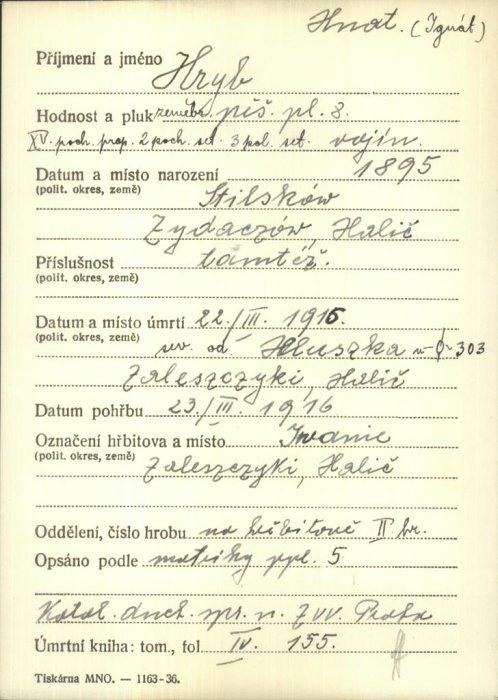 Hnat. (Ignát)
Příjmení a jméno Hryb
Hodnost a pluk zeměbr. pěš. pl. 8.
XV. poch. prap. 2 poch. set. 3 pol. set. vojín.
Datum a místo narození 1895
(polit. okres, země) Stilsków
Zydaczów, Halič
Příslušnost tamtéž.
(polit. okres, země)
Datum a místo úmrtí 22./III. 1916.
(polit. okres, země) sev. od Hluszka 303
Zaleszczyki, Halič
Datum pohřbu 23./III. 1916
Označení hřbitova a místo Iwanie
(polit. okres, země) Zaleszczyki, Halič
Oddělení, číslo hrobu na hřbitově II hr.
Opsáno podle matriky ppl. 5
Katol. duch. spr. n. ZVV. Praha
Úmrtní kniha: tom., fol IV. 155.
Tiskárna MNO. — 1163-36.